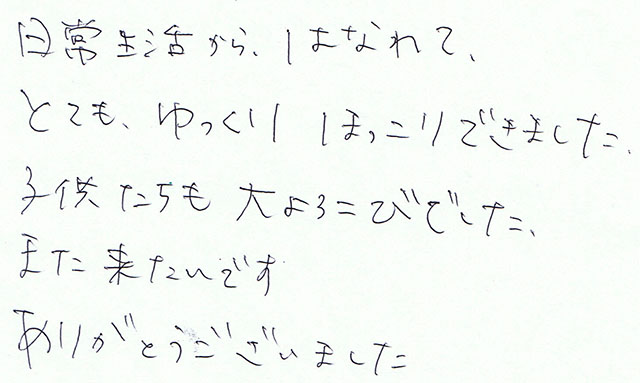 日常生活から、はなれて、
とても、ゆっくり ほっこりできました。
子供たちも 大よろこびでした。
また来たいです
ありがとうございました